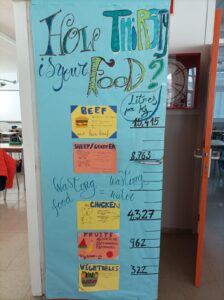 How Thirsty
is your FOOD?
Litres
per kg
BEEF
15,415
SHEEP/GOAT
8,763
Wasting = Wasting
food water
CHICKEN
4,327
FRUITS
962
VEGETABLES
322